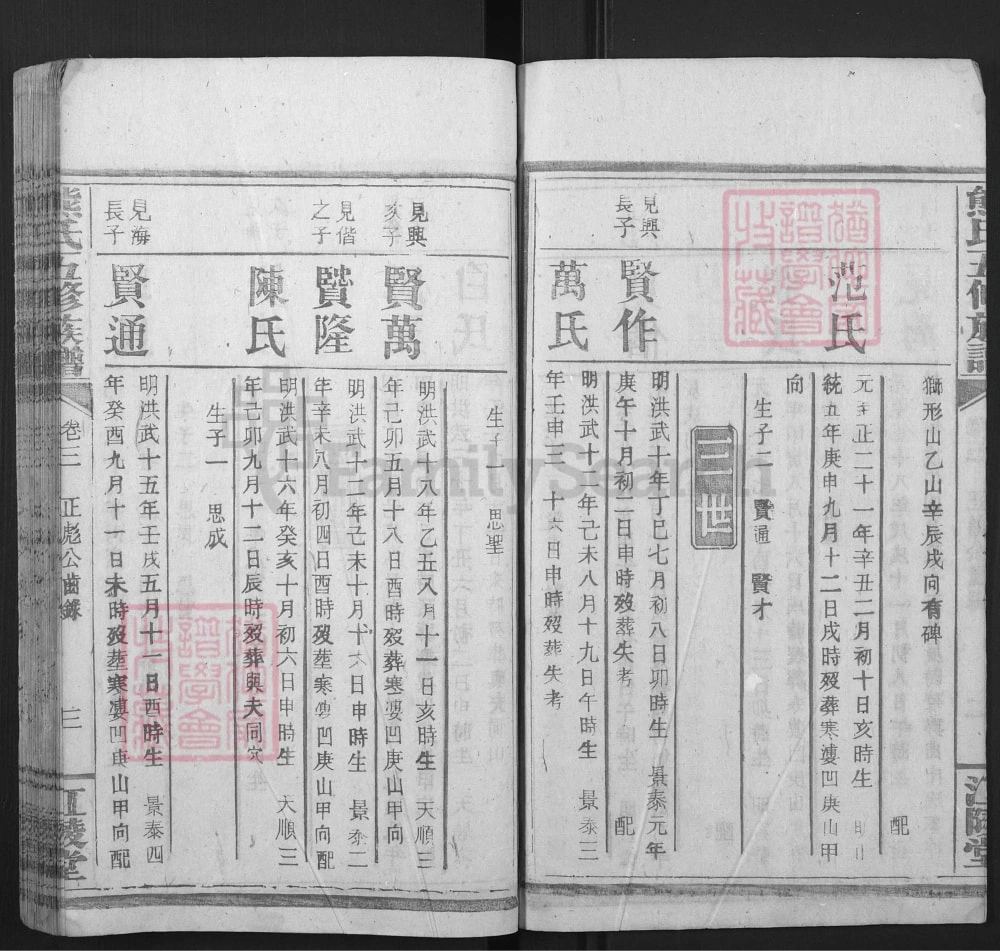 獅形山乙山辛辰戌向有碑
配
范氏
元至正二十一年辛丑二月初十日亥時生
明
統五年庚申九月十二日戌時歿葬寒婆凹庚山甲
向
生子二 賢通 賢才
三世
見興
長子
賢作
明洪武十年丁巳七月初八日卯時生 景泰元年
庚午十月初二日申時歿葬失考 配
萬氏
明洪武十一年己未八月十九日午時生 景泰三
年壬申三 十六日申時歿葬失考
江陵堂
生子一 思聖
見興
亥子
賢萬
明洪武十八年乙丑八月十一日亥時生 天順三
年己卯五月十八日酉時歿葬寒婆凹庚山甲向
見偕
之子
賢隆
明洪武十二年己未十月十六日申時生 景泰二
年辛未八月初四日酉時歿塟寒婆凹庚山甲向配
陳氏
明洪武十六年癸亥十月初六日申時生 天順三
年己卯九月十二日辰時歿葬與夫同穴
生子一 思成
見海
長子
賢通
明洪武十五年壬戌五月十一日酉時生 景泰四
年癸酉九月十一日未時歿塟寒婆凹庚山甲向配
熊氏五修族譜
卷三 正彪公齒錄
三
江陵堂